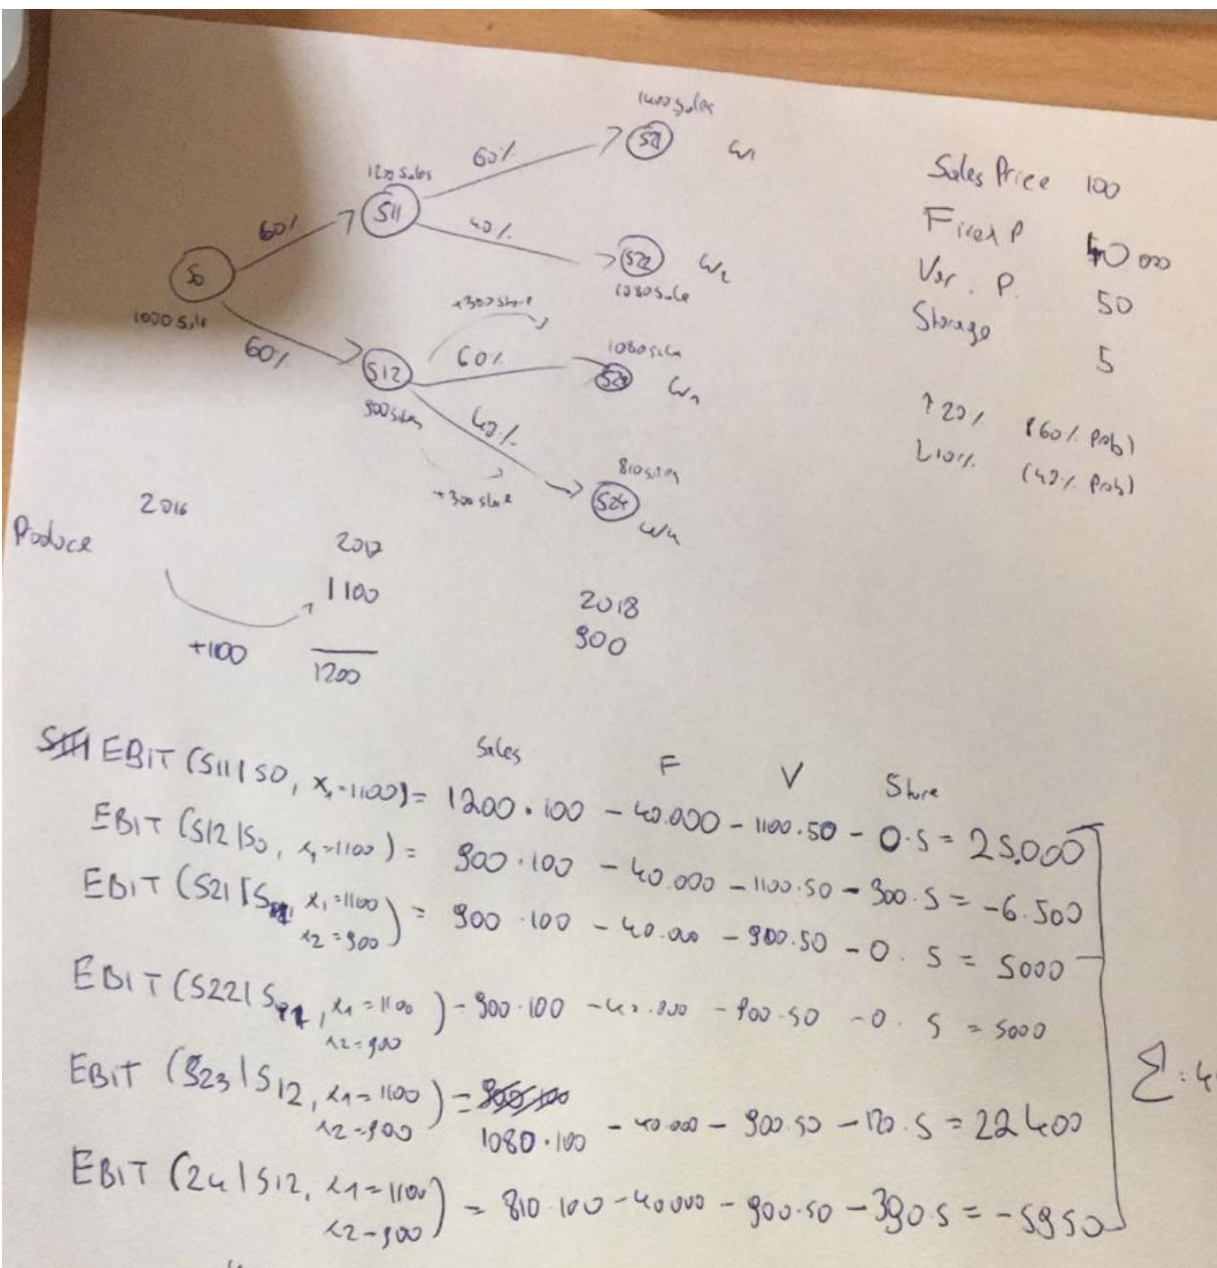 1400 Sales
S21 ω1
60%
1200 Sales
S11
60%
40%
S0
S22 ω2
1080 Sale
1000 Sale
+300 Store
60%
60%
1080 Sales
S12
S23
900 Sales
40%
810 Sales
+300 store
S24
ω4
Sales Price 100
Fixed P 40 000
Var. P. 50
Storage 5
↑ 20% (60% Prob)
↓ 10% (40% Prob)
2016
Produce
2017
1100
2018
900
+100
1200
Sales F V Store
EBIT (S11 | S0, x1=1100) = 1200 · 100 - 40.000 - 1100.50 - 0·5 = 25.000
EBIT (S12 | S0, x1=1100) = 900 · 100 - 40.000 - 1100.50 - 300.5 = -6.500
EBIT (S21 | S11, x1=1100 x2=900) = 900 · 100 - 40.000 - 900.50 - 0. 5 = 5000
EBIT (S22 | S11, x1=1100 x2=900) = 900·100 - 40.000 - 900.50 - 0. 5 = 5000
EBIT (S23 | S12, x1=1100 x2=900) = 1080·100 - 40.000 - 900.50 - 120.5 = 22400
EBIT (24 | S12, x1=1100 x2=900) = 810·100 - 40000 - 900.50 - 390.5 = -5950
Σ: 4